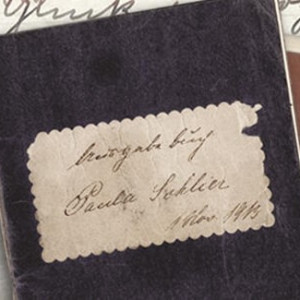 Glück
Ausgabe buch
Paula Schlier
1 Nov. 1915